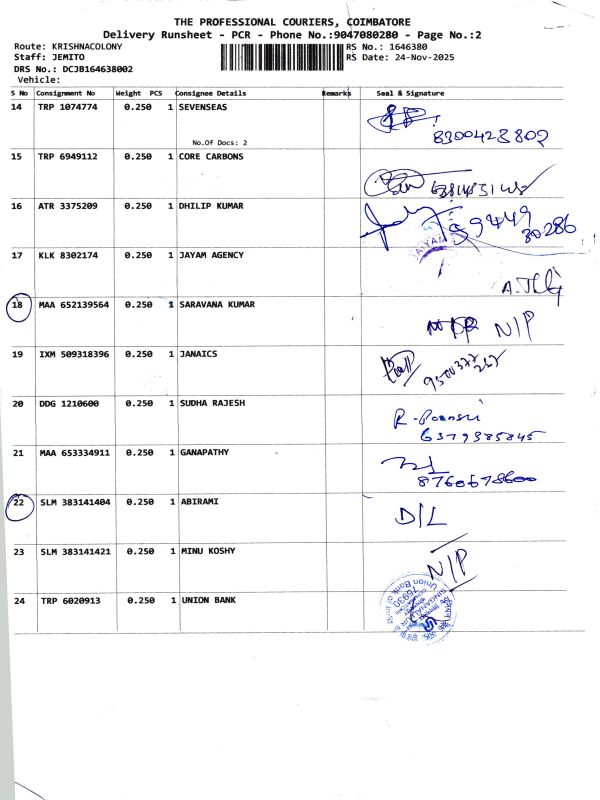 THE PROFESSIONAL COURIERS, COIMBATORE
Delivery Runsheet - PCR - Phone No.:9047080280 - Page No.:2
Route: KRISHNACOLONY
RS No.: 1646380
Staff: JEMITO
RS Date: 24-Nov-2025
DRS No.: DCJB164638002
Vehicle:
S No Consignment No Weight PCS Consignee Details Remarks Seal & Signature
14 TRP 1074774 0.250 1 SEVENSEAS
8300423802
No.Of Docs: 2
15 TRP 6949112 0.250 1 CORE CARBONS
16 ATR 3375209 0.250 1 DHILIP KUMAR
99449
30286
17 KLK 8302174 0.250 1 JAYAM AGENCY
18 MAA 652139564 0.250 1 SARAVANA KUMAR
N/P
19 IXM 509318396 0.250 1 JANAICS
20 DDG 1210600 0.250 1 SUDHA RAJESH
6379385845
21 MAA 653334911 0.250 1 GANAPATHY
8760678600
22 SLM 383141404 0.250 1 ABIRAMI
D/L
23 SLM 383141421 0.250 1 MINU KOSHY
N/P
24 TRP 6020913 0.250 1 UNION BANK